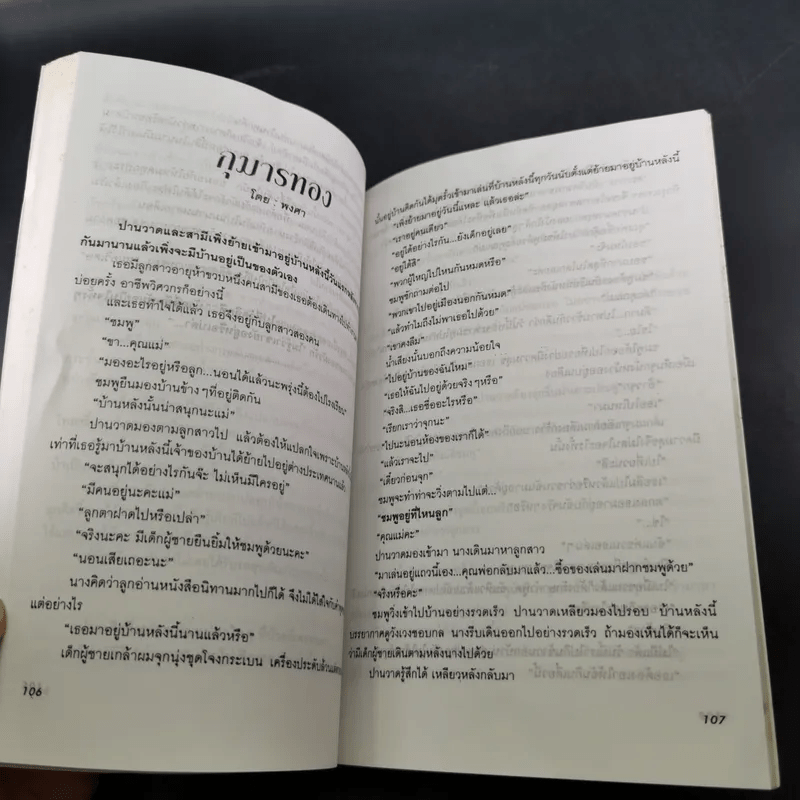 กุมารทอง
โดย : พงศา
ปานวาดและสามีเพิ่งย้ายเข้ามาอยู่บ้านหลังนี้วันแรก
กันมานานแล้วเพิ่งจะมีบ้านอยู่เป็นของตัวเอง
เธอมีลูกสาวอายุห้าขวบหนึ่งคนสามีของเธอต้องเดินทางไป
บ่อยครั้ง อาชีพวิศวกรก็อย่างนี้
และเธอทำใจได้แล้ว เธอจึงอยู่กับลูกสาวสองคน
“ชมพู”
“ขา...คุณแม่”
“มองอะไรอยู่หรือลูก...นอนได้แล้วนะพรุ่งนี้ต้องไปโรงเรียน”
ชมพูยืนมองบ้านข้าง ๆที่อยู่ติดกัน
“บ้านหลังนั้นน่าสนุกนะแม่”
ปานวาดมองตามลูกสาวไป แล้วต้องให้แปลกใจเพราะบ้านหลัง
เท่าที่เธอรู้มาบ้านหลังนี้เจ้าของบ้านได้ย้ายไปอยู่ต่างประเทศนานแล้ว
“จะสนุกได้อย่างไรกันจ๊ะ ไม่เห็นมีใครอยู่”
“มีคนอยู่นะคะแม่”
“ลูกตาฝาดไปหรือเปล่า”
“จริงนะคะ มีเด็กผู้ชายยืนยิ้มให้ชมพูด้วยนะคะ”
“นอนเสียเถอะนะ”
นางคิดว่าลูกอ่านหนังสือนิทานมากไปก็ได้ จึงไม่ได้ใส่ใจกับคำพูด
แต่อย่างไร
“เธอมาอยู่บ้านหลังนี้นานแล้วหรือ”
เด็กผู้ชายเกล้าผมจุกนุ่งชุดโจงกระเบน เครื่องประดับล้วน
106
บ้านติดกันได้มุดรั้วเข้ามาเล่นที่บ้านหลังนี้ทุกวันนับตั้งแต่ย้ายมาอยู่บ้านหลังนี้
“เพิ่งย้ายมาอยู่วันนี้แหละ แล้วเธอล่ะ”
“เราอยู่คนเดียว”
“อยู่ได้อย่างไรกัน...ยังเด็กอยู่เลย”
“อยู่ได้สิ”
“พวกผู้ใหญ่ไปไหนกันหมดหรือ”
ชมพูซักถามต่อไป
“พวกเขาไปอยู่เมืองนอกกันหมด”
“แล้วทำไมถึงไม่พาเธอไปด้วย”
“เขาคงลืม”
น้ำเสียงนั้นบอกถึงความน้อยใจ
“ไปอยู่บ้านของฉันไหม”
“เธอให้ฉันไปอยู่ด้วยจริง ๆหรือ”
“จริงสิ...เธอชื่ออะไรหรือ”
“เรียกเราว่าจุกนะ”
“ไปนะนอนห้องของเราก็ได้”
“แล้วเราจะไป”
“เดี๋ยวก่อนจุก”
ชมพูจะทำท่าจะวิ่งตามไปแต่...
“ชมพูอยู่ที่ไหนลูก”
“คุณแม่คะ”
ปานวาดมองเข้ามา นางเดินมาหาลูกสาว
“มาเล่นอยู่แถวนี้เอง...คุณพ่อกลับมาแล้ว...ซื้อของเล่นมาฝากชมพูด้วย”
“จริงหรือคะ”
ชมพูวิ่งเข้าไปบ้านอย่างรวดเร็ว ปานวาดเหลียวมองไปรอบ บ้านหลังนี้
บรรยากาศดูวังเวงชอบกล นางรีบเดินออกไปอย่างรวดเร็ว ถ้ามองเห็นได้ก็จะเห็น
ว่ามีเด็กผู้ชายเดินตามหลังนางไปด้วย
ปานวาดรู้สึกได้ เหลียวหลังกลับมา
107